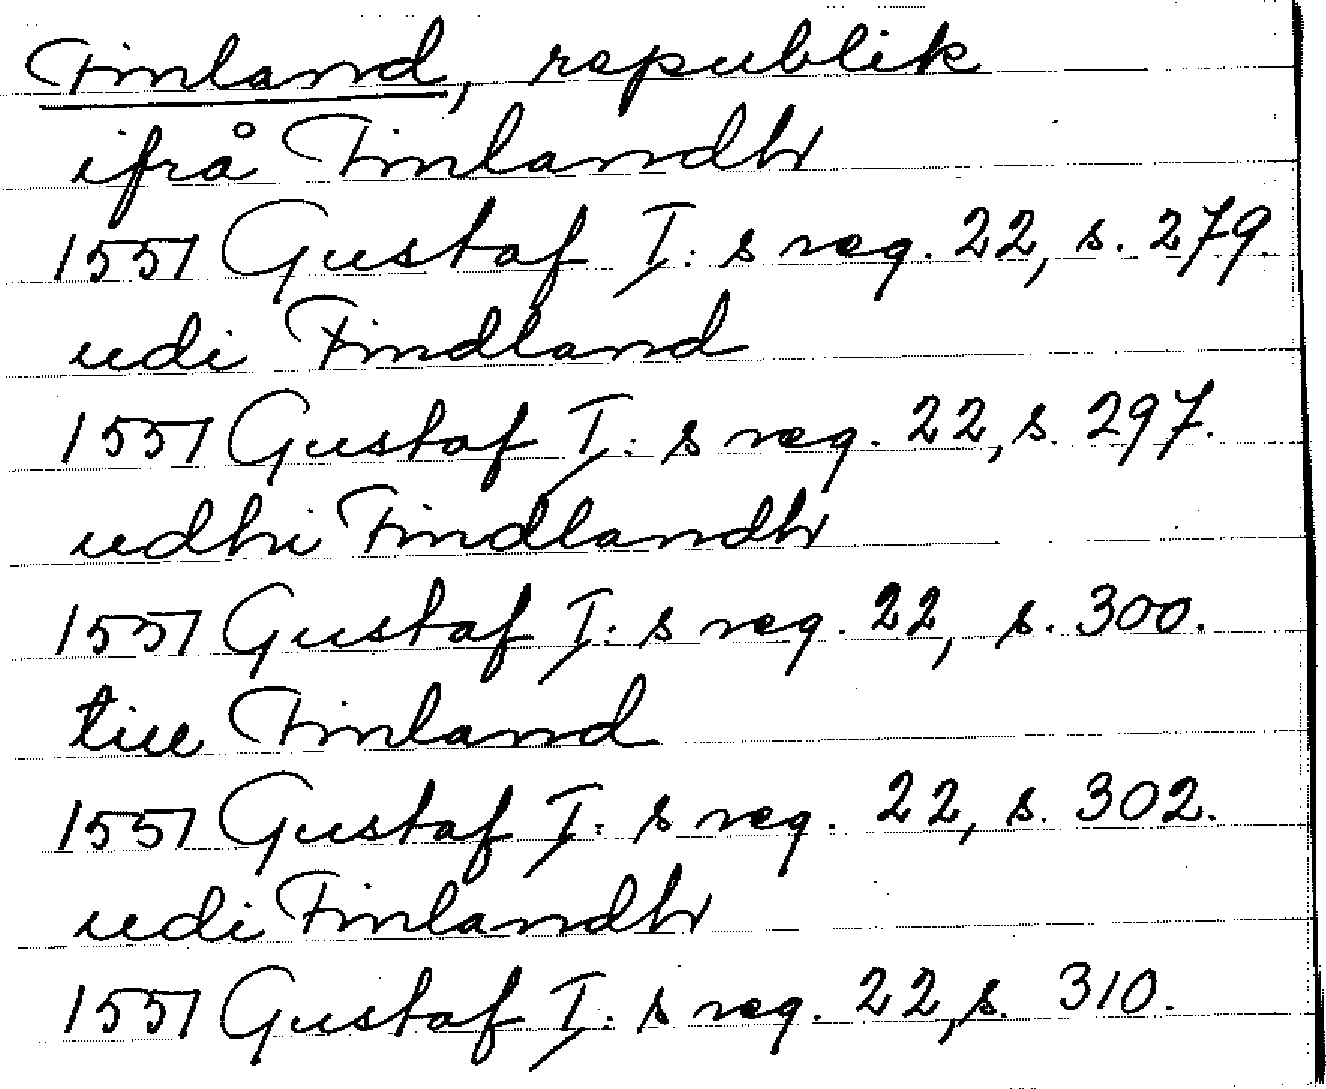 Finland, republik
ifrå Finlandh
1551 Gustaf I: s reg. 22, s. 279.
udi Findland
1551 Gustaf I: s reg. 22, s. 297.
udhi Findlandh
1551 Gustaf I: s reg. 22, s. 300.
till Finland
1551 Gustaf I: s reg. 22, s. 302.
udi Finlandh
1551 Gustaf I: s reg. 22, s. 310.